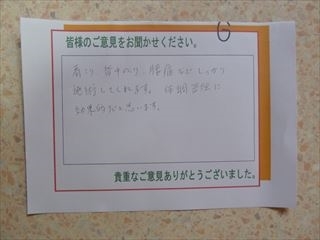 G
皆様のご意見をお聞かせください。
肩こり、背中のハリ、腰痛など しっかり
施術してくれます。体調豆知に
効果的だと思います。
貴重なご意見ありがとうございました。